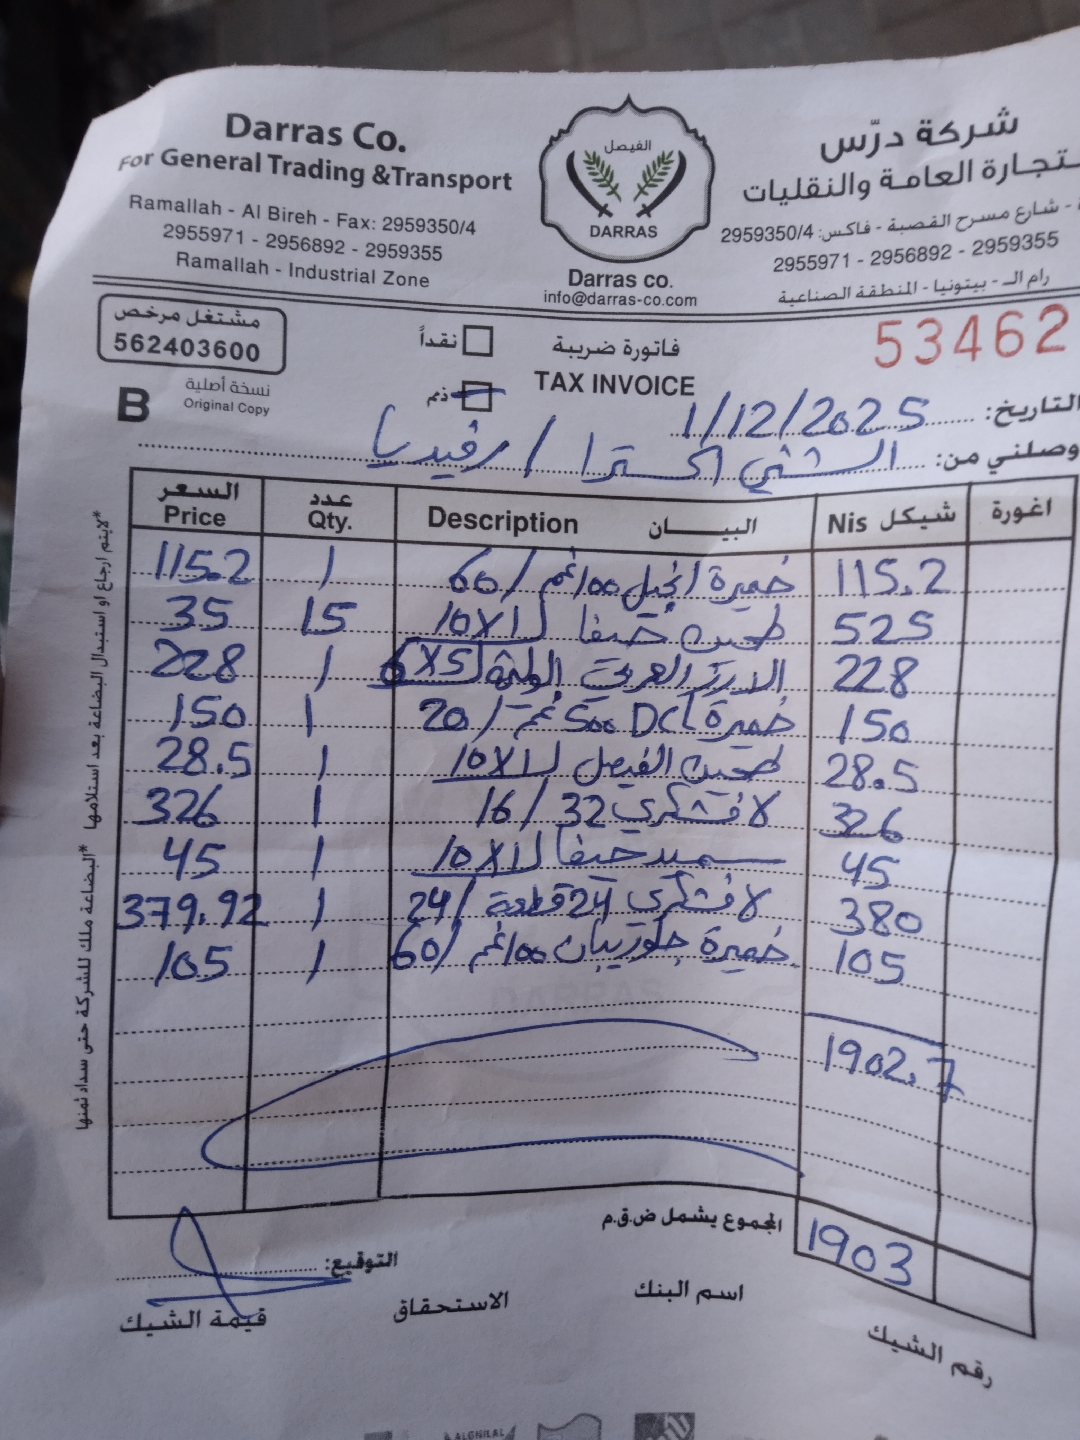 Darras Co.
For General Trading &Transport
Ramallah - Al Bireh - Fax: 2959350/4
2955971 - 2956892 - 2959355
Ramallah - Industrial Zone
الفيصل
DARRAS
Darras co.
info@darras-co.com
شركة درّس
تجارة العامة والنقليات
شارع مسرح القصبة - فاكس: 2959350/4
2955971 - 2956892 - 2959355
رام الـ - بيتونيا - المنطقة الصناعية
مشتغل مرخص
562403600
نقداً
فاتورة ضريبة
53462
B
نسخة أصلية
Original Copy
ذمم
TAX INVOICE
التاريخ: 1/12/2025
وصلني من: الشني اكسترا / رفيديا
السعر Price عدد Qty. Description البيـــان شيكل Nis اغورة
115.2 1 خميرة انجيل 100غم / 60 115.2
35 15 طحين حيفا 10X1 525
228 1 الارز العربي 6X5 228
150 1 خميرة DCL 500غم / 20 150
28.5 1 طحين الفيصل 10X1 28.5
326 1 لافشكري 32 / 16 326
45 1 سميد حيفا 10X1 45
379.92 1 لافشكري 24 قطعة / 24 380
105 1 خميرة 100غم / 60 105
DARRAS
1902.7
المجموع يشمل ض.ق.م 1903
التوقيع:
قيمة الشيك
الاستحقاق
اسم البنك
رقم الشيك
*لايتم ارجاع او استبدال البضاعة بعد استلامها *البضاعة ملك للشركة حتى سداد ثمنها
ALGHILAL